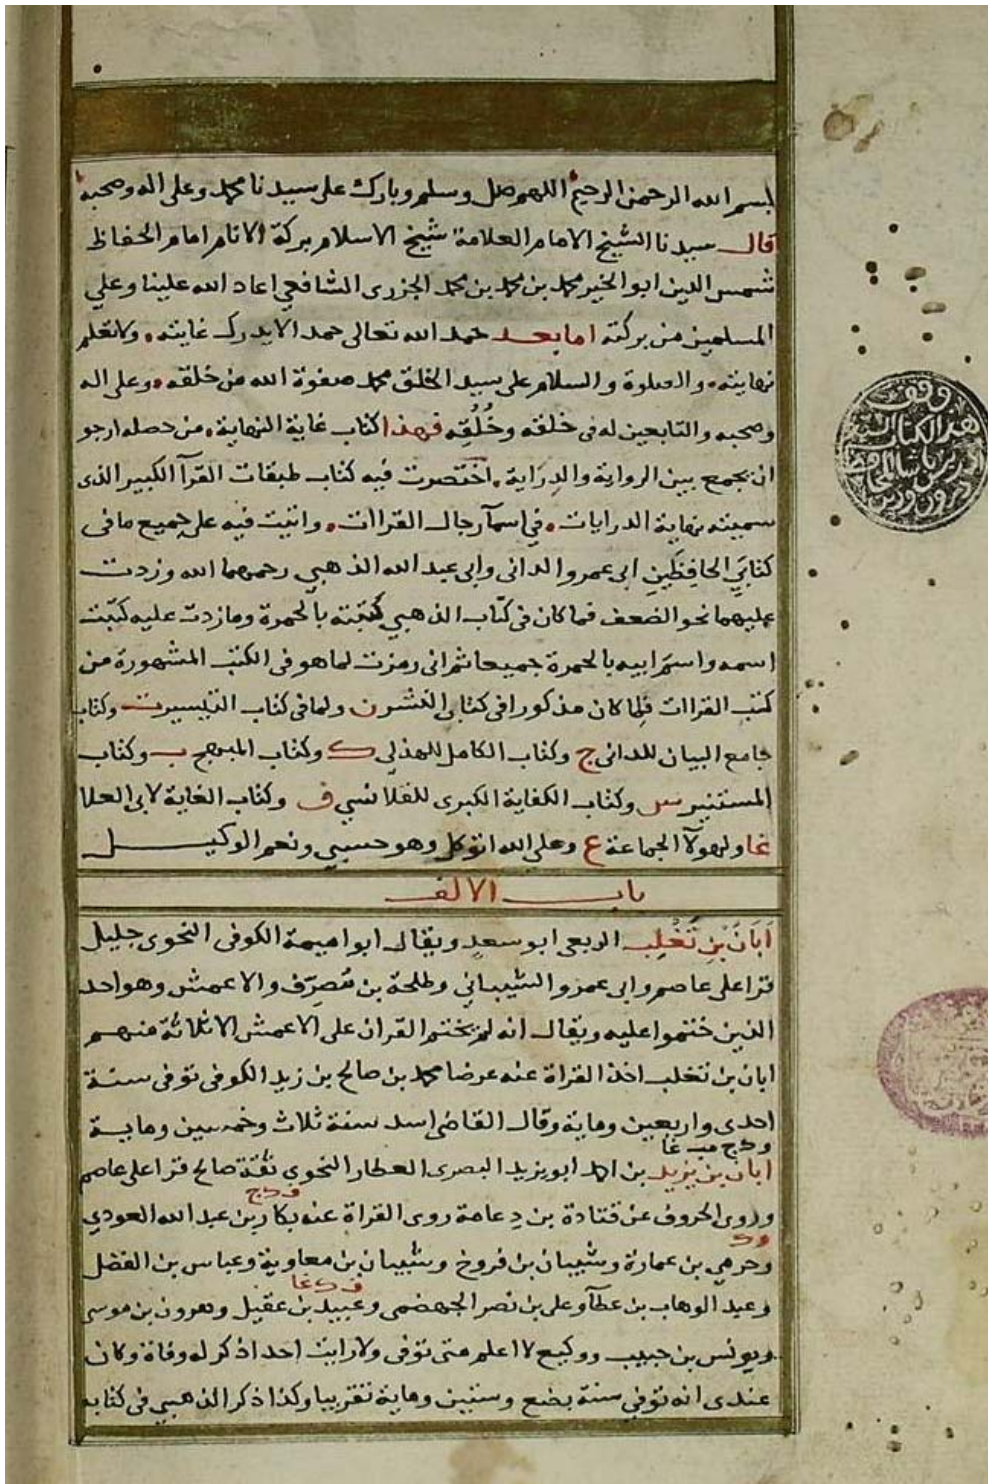 بسم الله الرحمن الرحيم اللهم صل وسلم وبارك على سيدنا محمد وعلى اله وصحبه
قال سيدنا الشيخ الامام العلامة شيخ الاسلام بركة الانام امام الحفاظ
شمس الدين ابو الخير محمد بن محمد بن محمد الجزرى الشافعي اعاد الله علينا وعلي
المسلمين من بركته اما بعد حمد الله تعالى حمد الا يدرك غايته ولا تعلم
نهايته والصلوة والسلام على سيد الخلق محمد صفوة الله من خلقه وعلى اله
وصحبه والتابعين له في خلقه وخُلُقِه فهذا كتاب غاية النهاية من حصله ارجو
ان يجمع بين الرواية والدِرَاية اختصرت فيه كتاب طبقات القرآ الكبير الذى
سميته نهاية الدرايات في اسمآ رجال القراات واتيت فيه على جميع ما فى
كتابَيِ الحافِظَينِ ابى عمرو الدانى وابى عبد الله الذهبي رحمهما الله وزدت
عليهما نحو الضعف فما كان فى كتاب الذهبي كتبته بالحمرة وما زدت عليه كتبت
اسمه واسم ابيه بالحمرة جميعا ثم انى رمزت لما هو فى الكتب المشهورة من
كتب القراات فلما كان مذكورا فى كتابى النشر ن ولما فى كتاب التيسير ت وكتاب
جامع البيان للدانى ج وكتاب الكامل للهذلي ك وكتاب المبهج ب وكتاب
المستنير س وكتاب الكفاية الكبرى للقلانسي ف وكتاب الغاية لابى العلا
غا ولهولآ الجماعة ع وعلى الله اتوكل وهو حسبي ونعم الوكيل
باب الالف
اَبَانُ بن تَغْلِب الربعى ابو سعدٍ ويقال ابو اميمة الكوفى النحوى جليل
قرا على عاصم وابى عمرو الشيبانى وطلحة بن مُصرِّف والاعمش وهو احد
الذين ختموا عليه ويقال انه لم يختم القران على الاعمش الا ثلاثة منهم
ابان بن تغلب اخذ القراة عنه عرضا محمد بن صالح بن زيد الكوفى توفى سنة
احدى واربعين وماية وقال القاضى اسد سنة ثلاث وخمسين وماية
ابان بن يزيد بن احمد ابو يزيد البصرى العطار النحوى ثقة صالح قرا على عاصم
وروى الحروف عن قتادة بن دِعامة روى القراة عنه بكار بن عبد الله العودي
وحرمي بن عمارة وشيبان بن فروخ وشيبان بن معاوية وعباس بن الفضل
وعبد الوهاب بن عطآ وعلى بن نصر الجهضمى وعبيد بن عقيل وهرون بن موسى
ويونس بن حبيب ووكيع لا اعلم متى توفى ولا رايت احدا ذكر له وفاة وكان
عندى انه توفي سنة بضع وستين وماية تقريبا وكذا ذكر الذهبي فى كتابه
وقف
هذا الكتاب